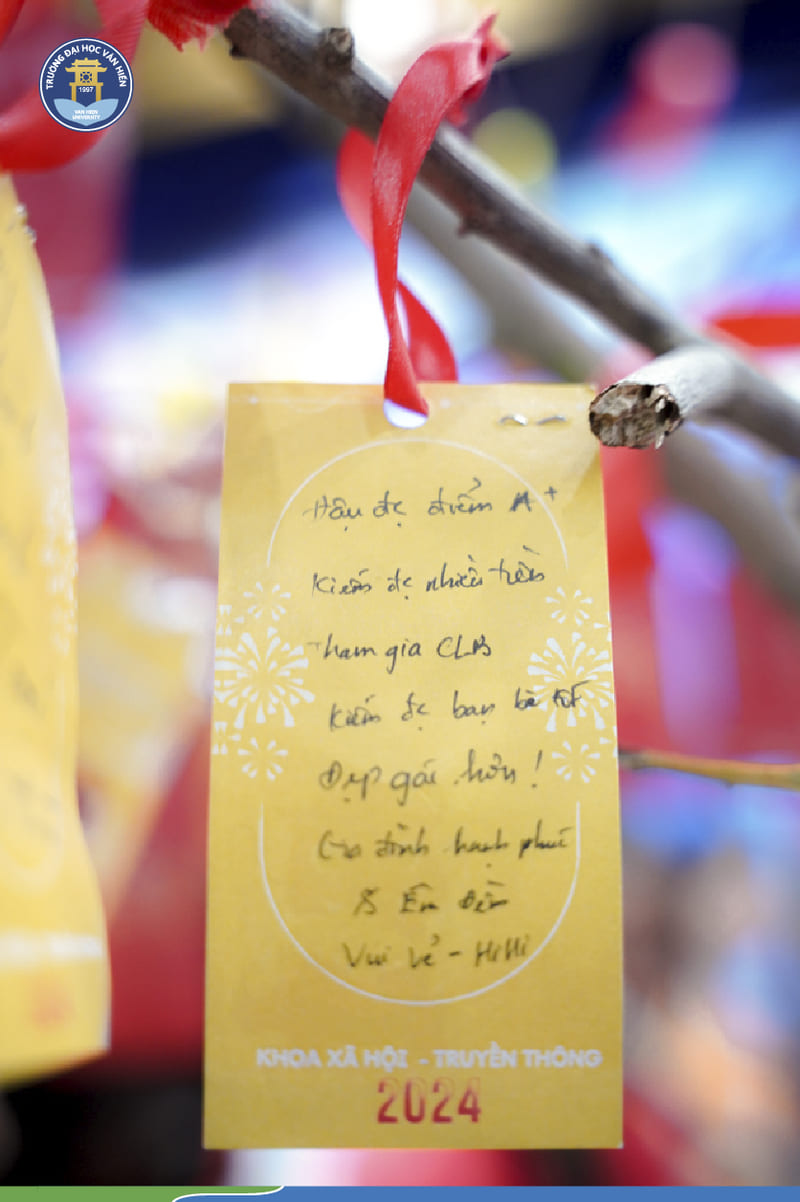 TRƯỜNG ĐẠI HỌC VĂN HIẾN
1997
VAN HIEN
UNIVERSITY
Hậu đc điểm A+
Kiếm đc nhiều tiền
Tham gia CLB
Kiếm đc bạn bè tốt
Đẹp gái hơn!
Gia đình hạnh phúc
& Êm Đềm
Vui vẻ - HiHi
KHOA XÃ HỘI - TRUYỀN THÔNG
2024